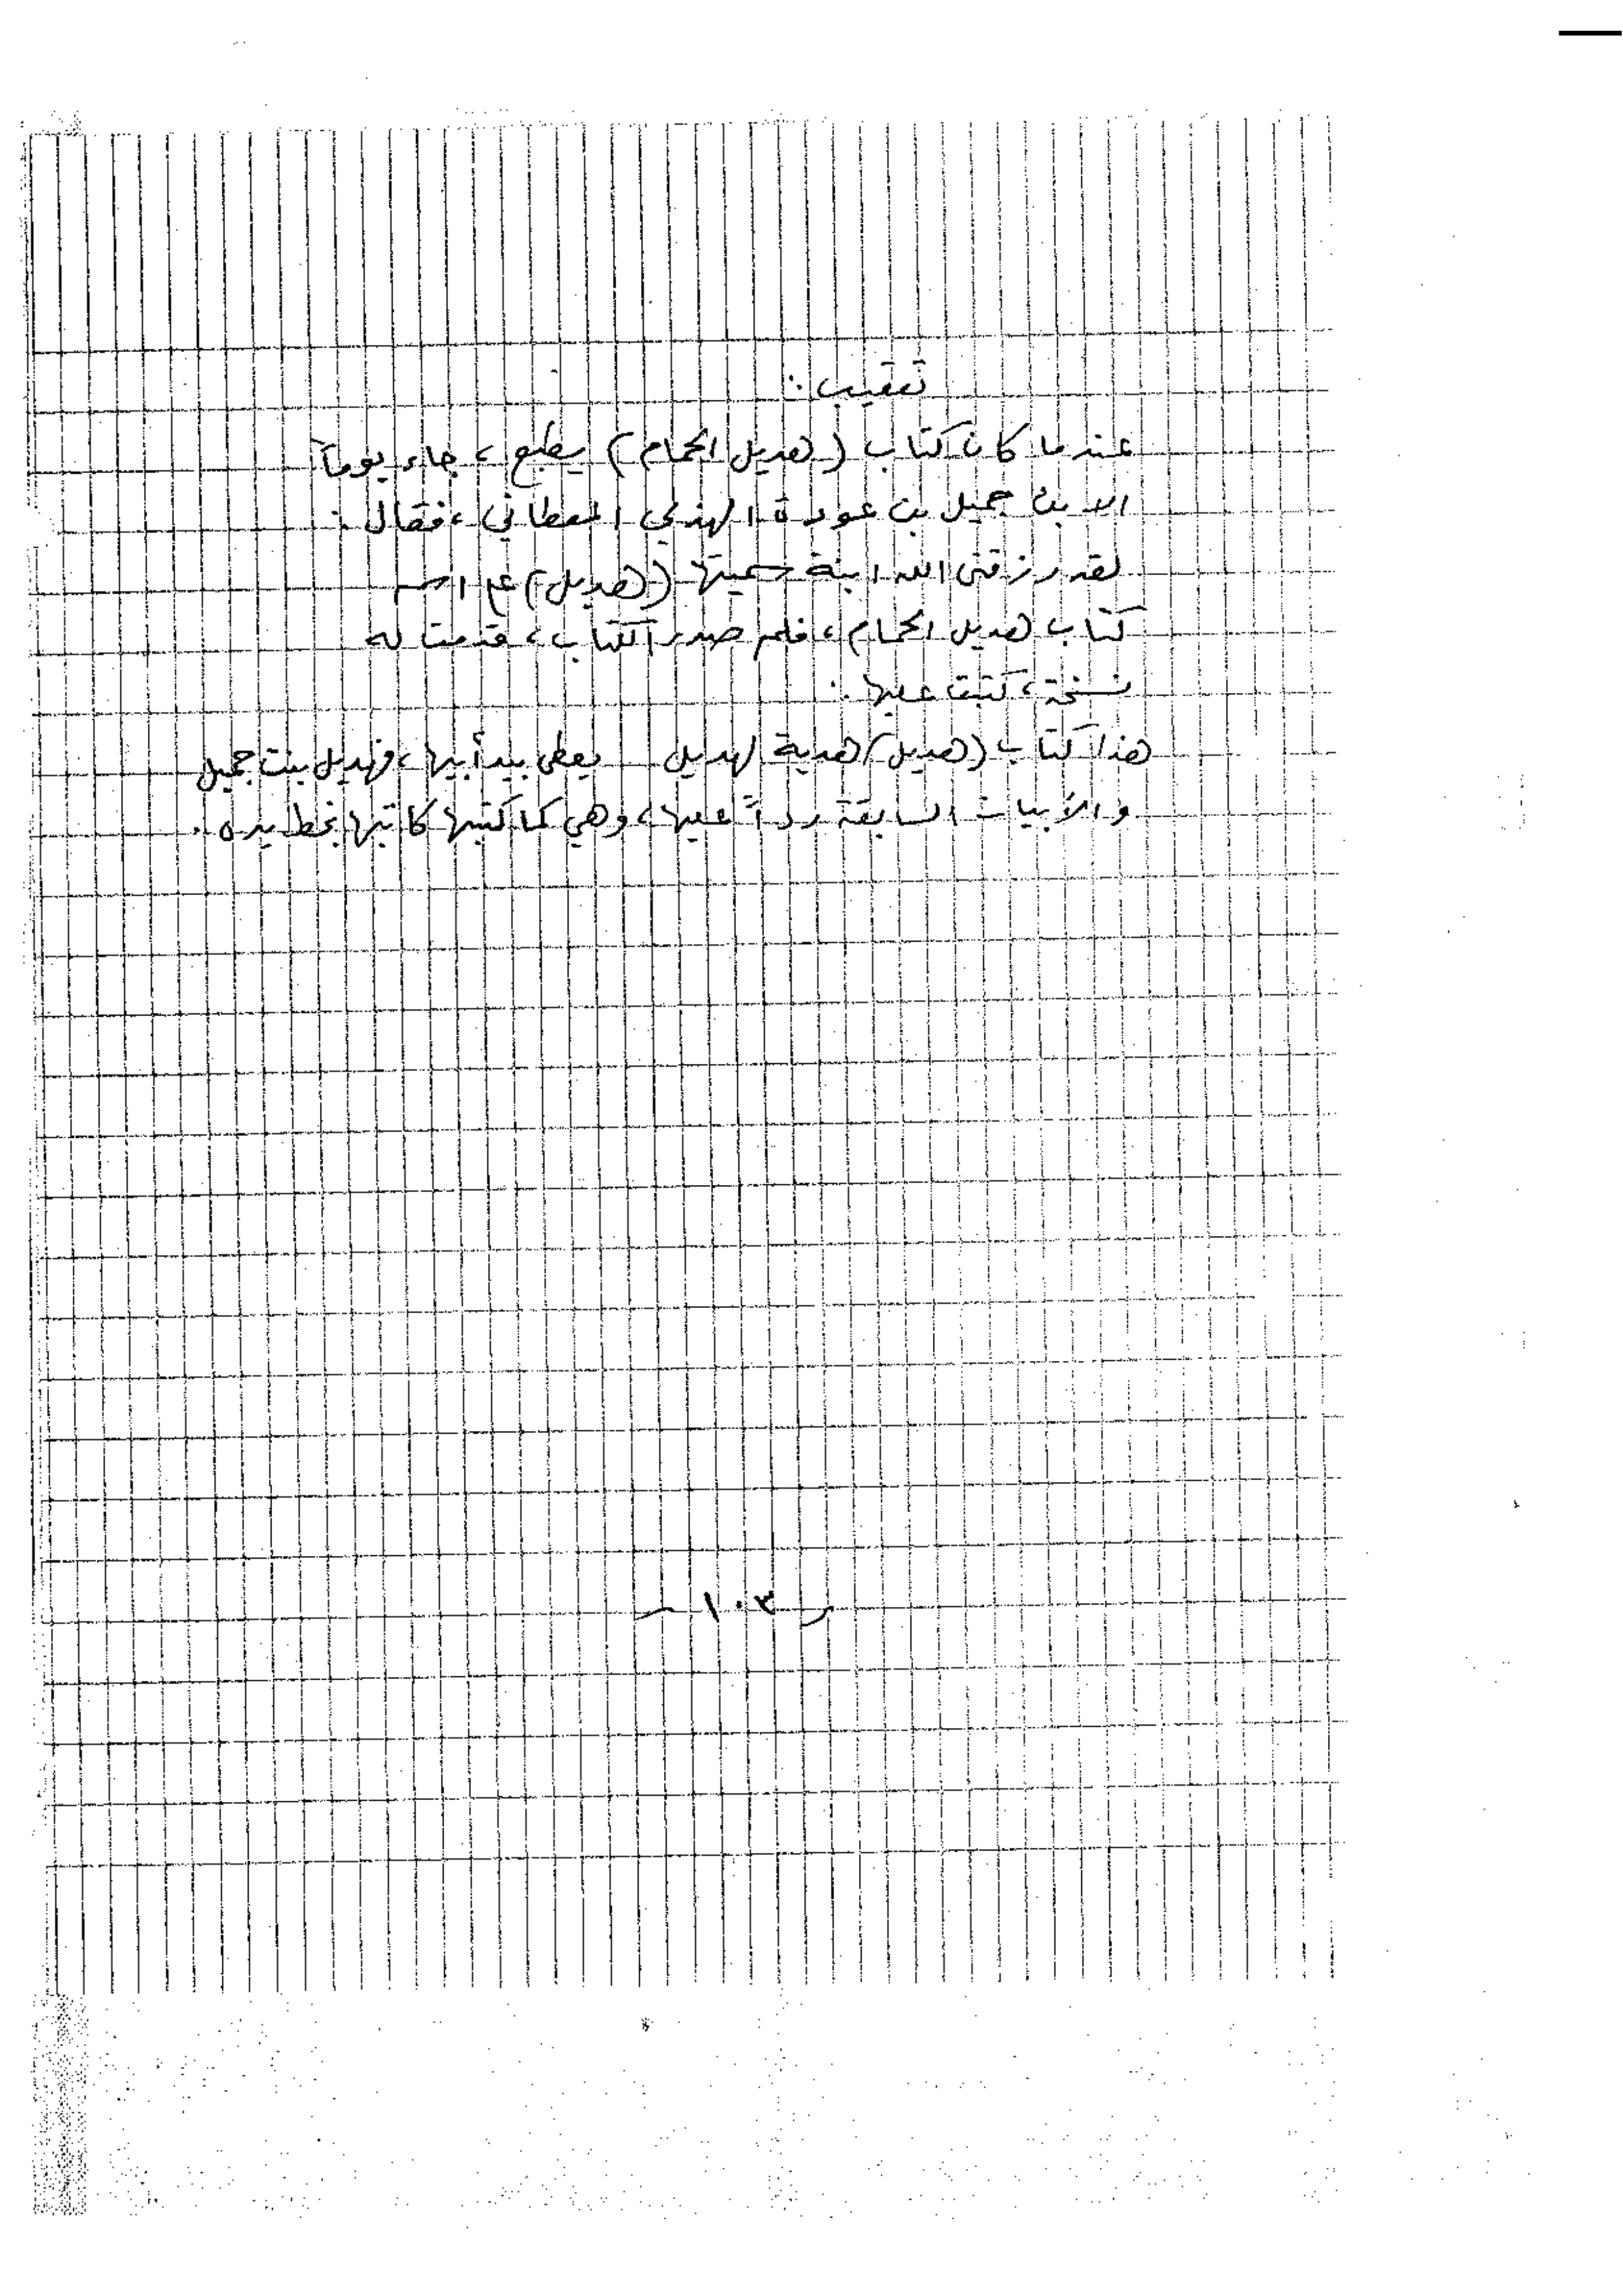 تعقيب :
عندما كان كتاب (هديل الحمام) يطبع ، جاء يوماً
الابن جميل بن عودة الهذلي المعطاني ، فقال :
لقد رزقني الله ابنة سميتها (هديل) على اسم
كتاب هديل الحمام ، فلما صدر الكتاب ، قدمت له
نسخة ، كتبت عليها :
هذا كتاب (هديل) هدية لهديل يعطى بيد أبيها ، فهديل بنت جميل
والأبيات السابقة رداً عليها ، وهي كما كتبها كاتبها بخط يده .
ـ ١٠٣ ـ